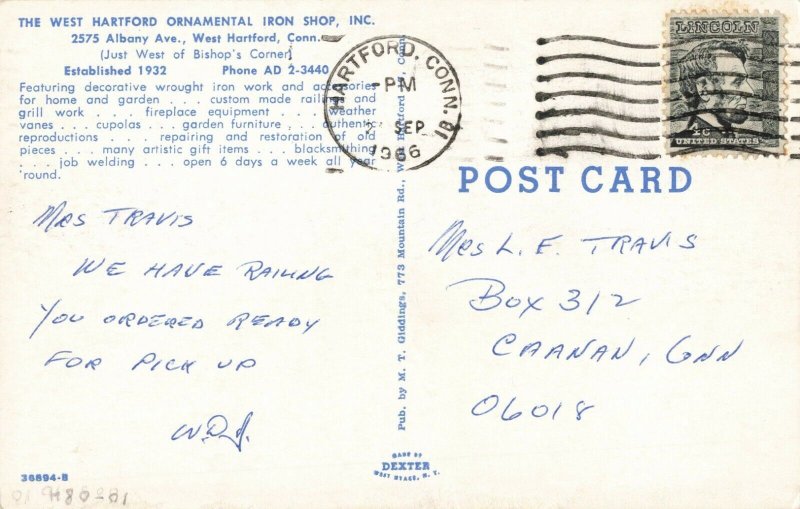 THE WEST HARTFORD ORNAMENTAL IRON SHOP, INC.
2575 Albany Ave., West Hartford, Conn.
(Just West of Bishop's Corner)
Established 1932 Phone AD 2-3440
Featuring decorative wrought iron work and accessories
for home and garden . . . custom made railings and
grill work . . . fireplace equipment . . . weather
vanes . . . cupolas . . . garden furniture . . . authentic
reproductions . . . repairing and restoration of old
pieces . . . many artistic gift items . . . blacksmithing
. . . job welding . . . open 6 days a week all year
'round.
MRS TRAVIS
WE HAVE RAILING
YOU ORDERED READY
FOR PICK UP
36894-B
Pub. by M. T. Giddings, 773 Mountain Rd., West Hartford, Conn.
MADE BY
DEXTER
WEST NYACK, N. Y.
HARTFORD, CONN. 61
PM
2 SEP
1966
LINCOLN
UNITED STATES
POST CARD
MRS L. E. TRAVIS
BOX 312
CAANAN, CONN
06018